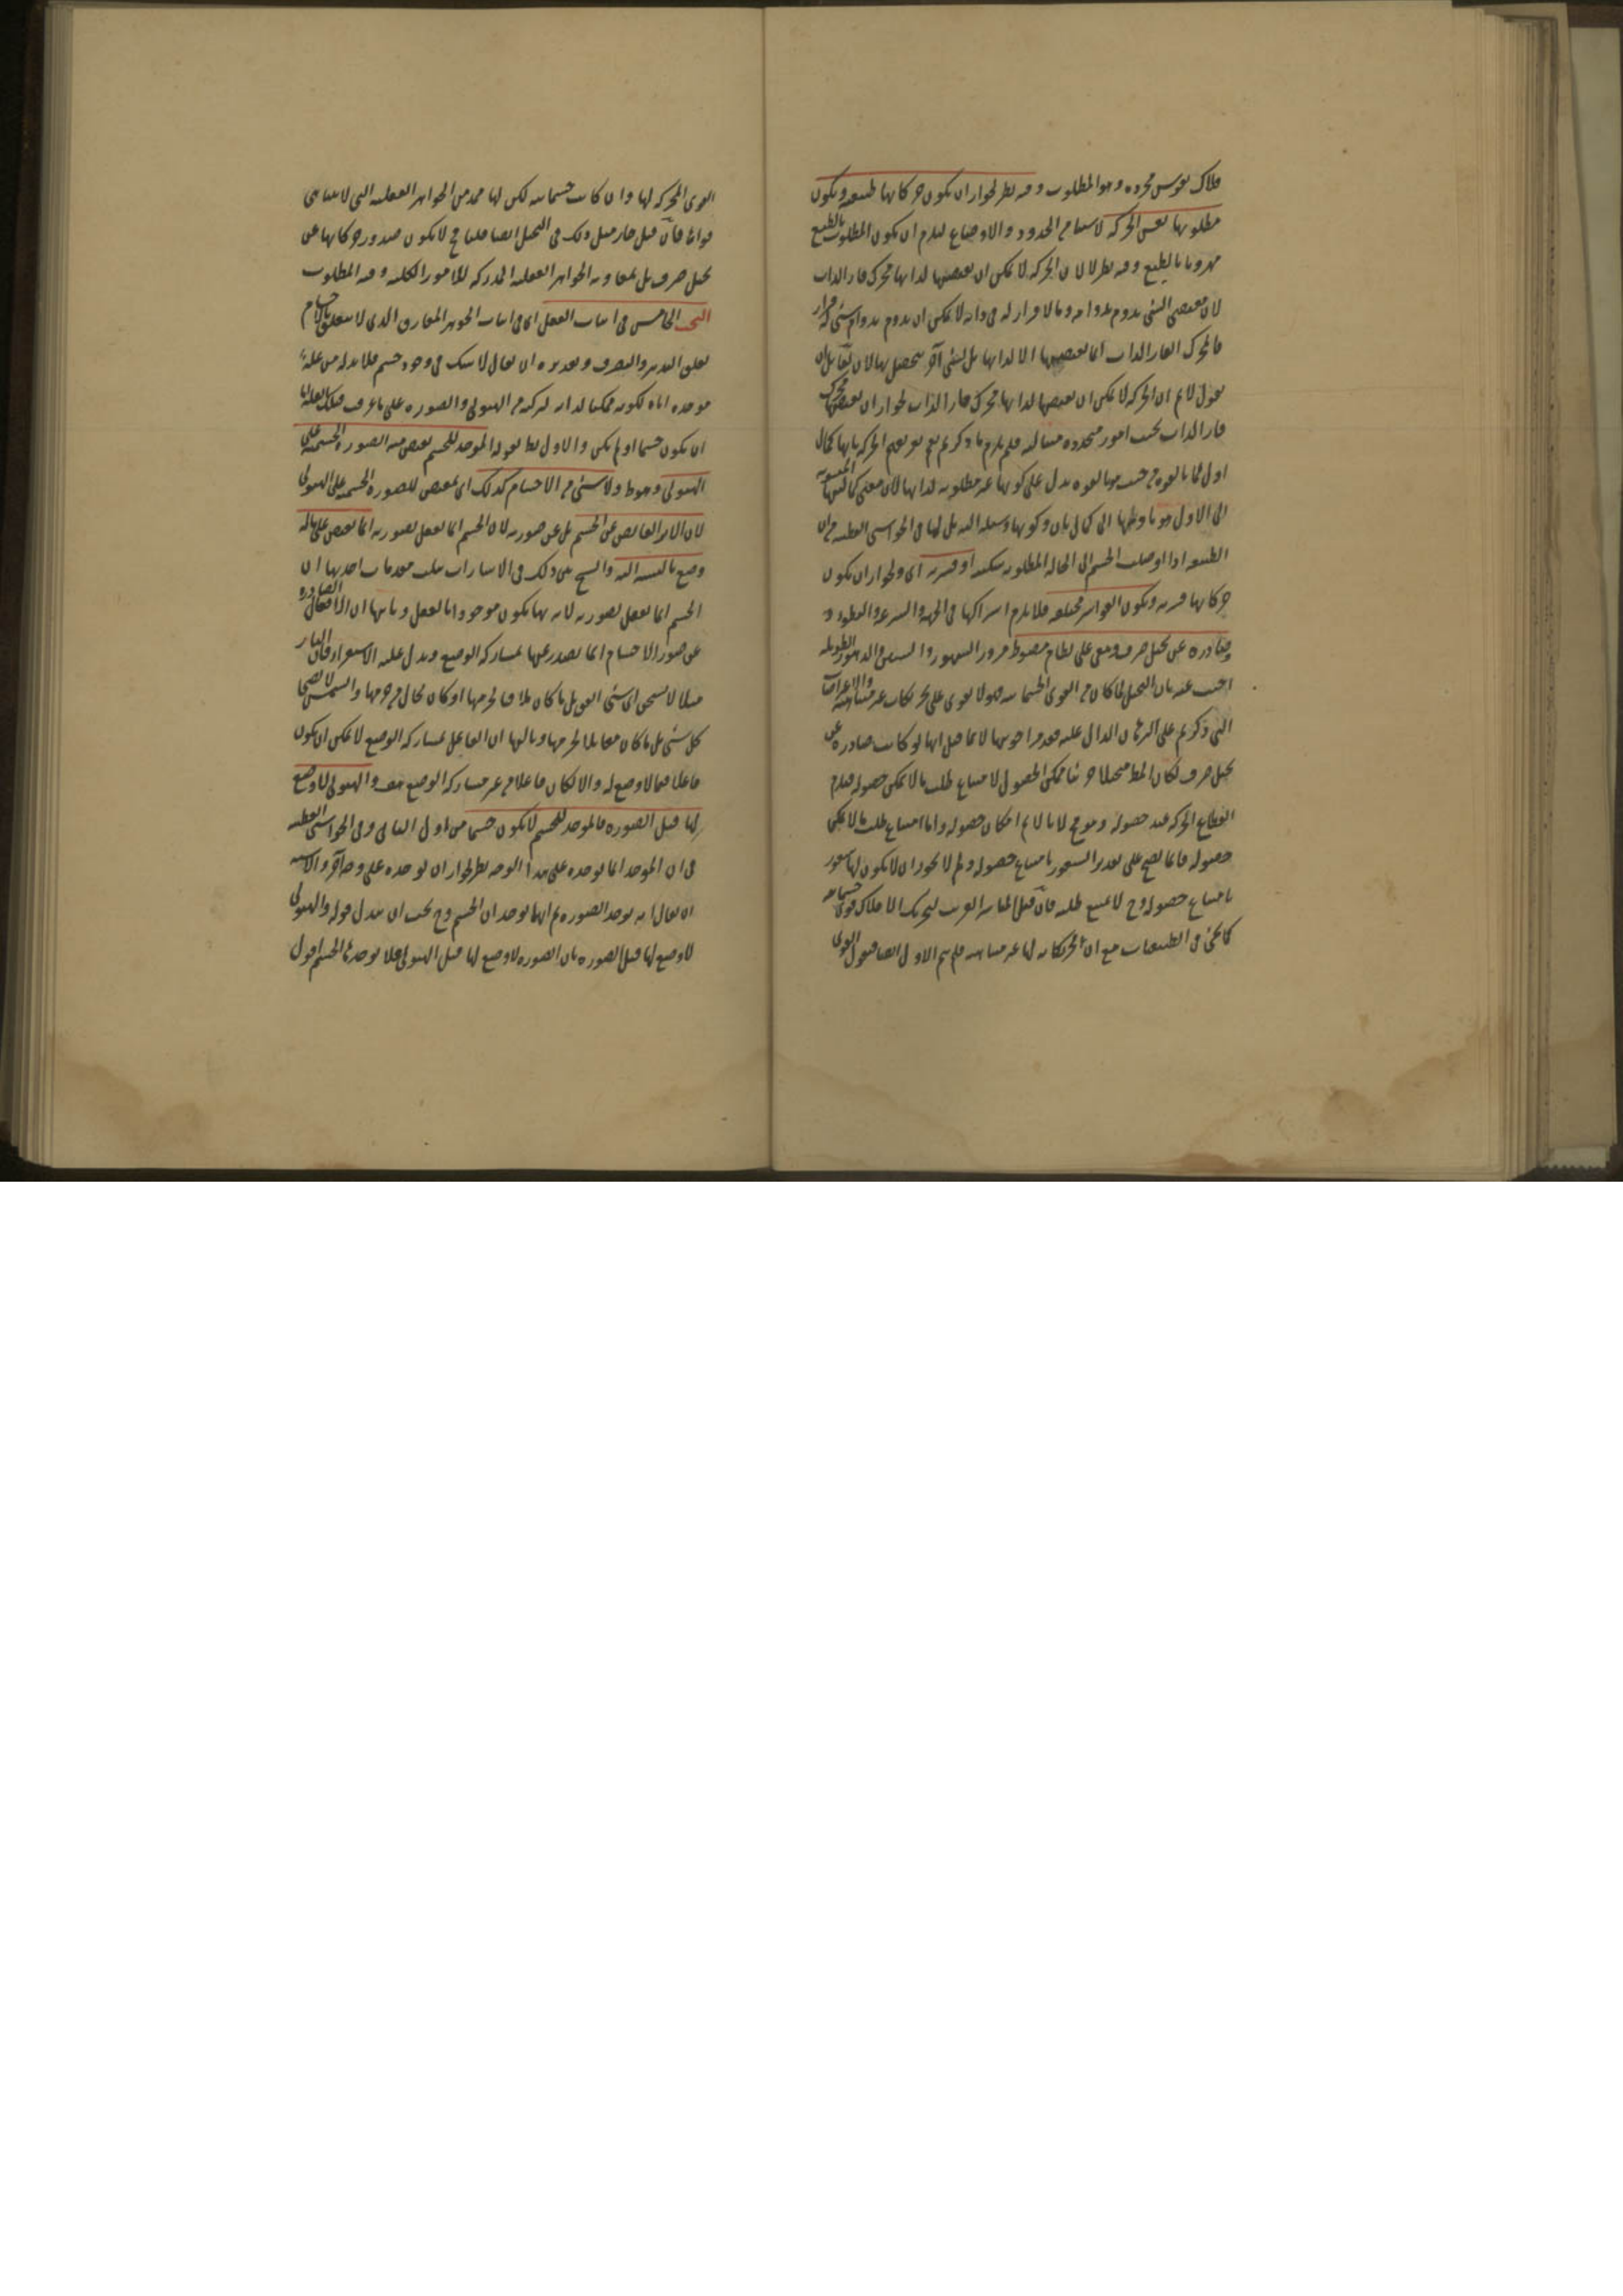 فلاك نفوس مجردة وهو المطلوب وفيه نظر لجواز ان يكون حركاتها طبيعية ويكون
مطلوبها نفس الحركة لاستفا من الحدود والاوضاع ليلزم ان يكون المطلوب بالطبع
مهروبا بالطبع وفيه نظر لان الحركة لا يمكن ان يقتضيها لذاتها محرك قار الذات
لان مقتضى الشئ يدوم بدوامه وما لا قرار له في ذاته لا يمكن ان يدوم بدوام شئ له قرار
فالمحرك القار الذات انما يقتضيها لا لذاتها بل لشئ آخر يتحصل بها لان لقائل ان
يقول لانم ان الحركة لا يمكن ان يقتضيها لذاتها محرك قار الذات لجواز ان يقتضيها محرك
قار الذات بحسب امور متجددة متتالية فلم يلزم ما ذكرتم نعم تعريفهم الحركة بانها كمال
اول لما بالقوة من حيث هو بالقوة يدل على كونها غير مطلوبة لذاتها لان معنى كماليتها المنسوبة
الى الاول هو تاديتها الى كمال ثان وكونها وسيلة اليه بل لها في الحواشي القطبية من ان
الطبيعة اذا اوصلت الجسم الى الحالة المطلوبة سكنت او قسرية اي ولجواز ان يكون
حركاتها قسرية ويكون القواسر مختلفة فلا يلزم اشتراكها في الجهة والسرعة والبطوء و
صادرة عن تخيل صرف وهي على نظام مضبوط مرور الشهور والسنين والدهور الطويلة
اجيب عنه بان التخيل لما كان من القوى الجسمانية فهو لا يقوى على تحريكات غير متناهية والاعراضات
التي ذكرتم على البرهان الدال عليه فقد مر اجوبتها لا بما قيل انها لو كانت صادرة عن
تخيل صرف لكان المط متخيلا جزئيا ممكن الحصول لامتناع طلب ما لا يمكن حصوله فيلزم
انقطاع الحركة عند حصوله وهو مح لانا لانم امكان حصوله واما امتناع طلب ما لا يمكن
حصوله فانما يصح على تقدير الشعور بامتناع حصوله ولم لا يجوز ان لا يكون لها شعور
بامتناع حصوله وح لا يمتنع طلبه فان قيل المباشر القريب لتحريك الافلاك قوى جسمانية
كما يجئ في الطبيعيات مع ان تحريكاته لها غير متناهية فلم يتم الاول ايضا فنقول القوى
القوى المحركة لها وان كانت جسمانية لكن لها ممد من الجواهر العقلية التي لا يتناهى
قواها فان قيل جاز مثل ذلك في التخيل ايضا قلنا ح لا يكون صدور حركاتها عن
تخيل صرف بل بمعاونة الجواهر العقلية المدركة للامور الكلية وفيه المطلوب
البحث الخامس في اثبات العقل اي في اثبات الجوهر المفارق الذي لا يتعلق بالاجسام
تعلق التدبير والتصرف وتقديره ان يقال لا شك في وجود جسم فلا بد له من علة
موجدة اياه لكونه ممكنا لذاته لتركبه من الهيولى والصورة على ما عرف فتلك العلة اما
ان يكون جسما او لم يكن والاول بط لقوله الموجد للجسم يقتضي منه الصورة الجسمية على
الهيولى وهو ط ولا شئ من الاجسام كذلك اي بمفيض للصورة الجسمية على الهيولى
لان الاثر الفايض عن الجسم بل عن صورته لان الجسم انما يفعل بصورته انما يفيض على ما له
وضع بالنسبة اليه والشيخ بنى ذلك في الاشارات بثلث مقدمات احديها ان
الجسم انما يفعل بصورته لانه بها يكون موجودا بالفعل وثانيها ان الافعال الصادرة
عن صور الاجسام انما يصدر عنها بمشاركة الوضع ويدل عليه الاستقراء فان النار
مثلا لا تسخن اي شئ اتفق بل ما كان ملاقيا لجرمها او كان بحال من جرمها والشمس لا تضئ
كل شئ بل ما كان مقابلا لجرمها وثالثها ان الفاعل بمشاركة الوضع لا يمكن ان يكون
فاعلا فيما لا وضع له والا لكان فاعلا من غير مشاركة الوضع هف والهيولى لا وضع
لها قبل الصورة فالموجد للجسم لا يكون جسما من اول الثاني وفي الحواشي القطبية
في ان الموجد انما يوجده على هذا الوجه نظر لجواز ان يوجده على وجه آخر والاشبه
ان يقال انه يوجد الصورة ثم انها يوجد ان الجسم وح يجب ان يبدل قوله والهيولى
لا وضع لها قبل الصورة بان الصورة لا وضع لها قبل الهيولى فلا يوجدها الجسم اقول